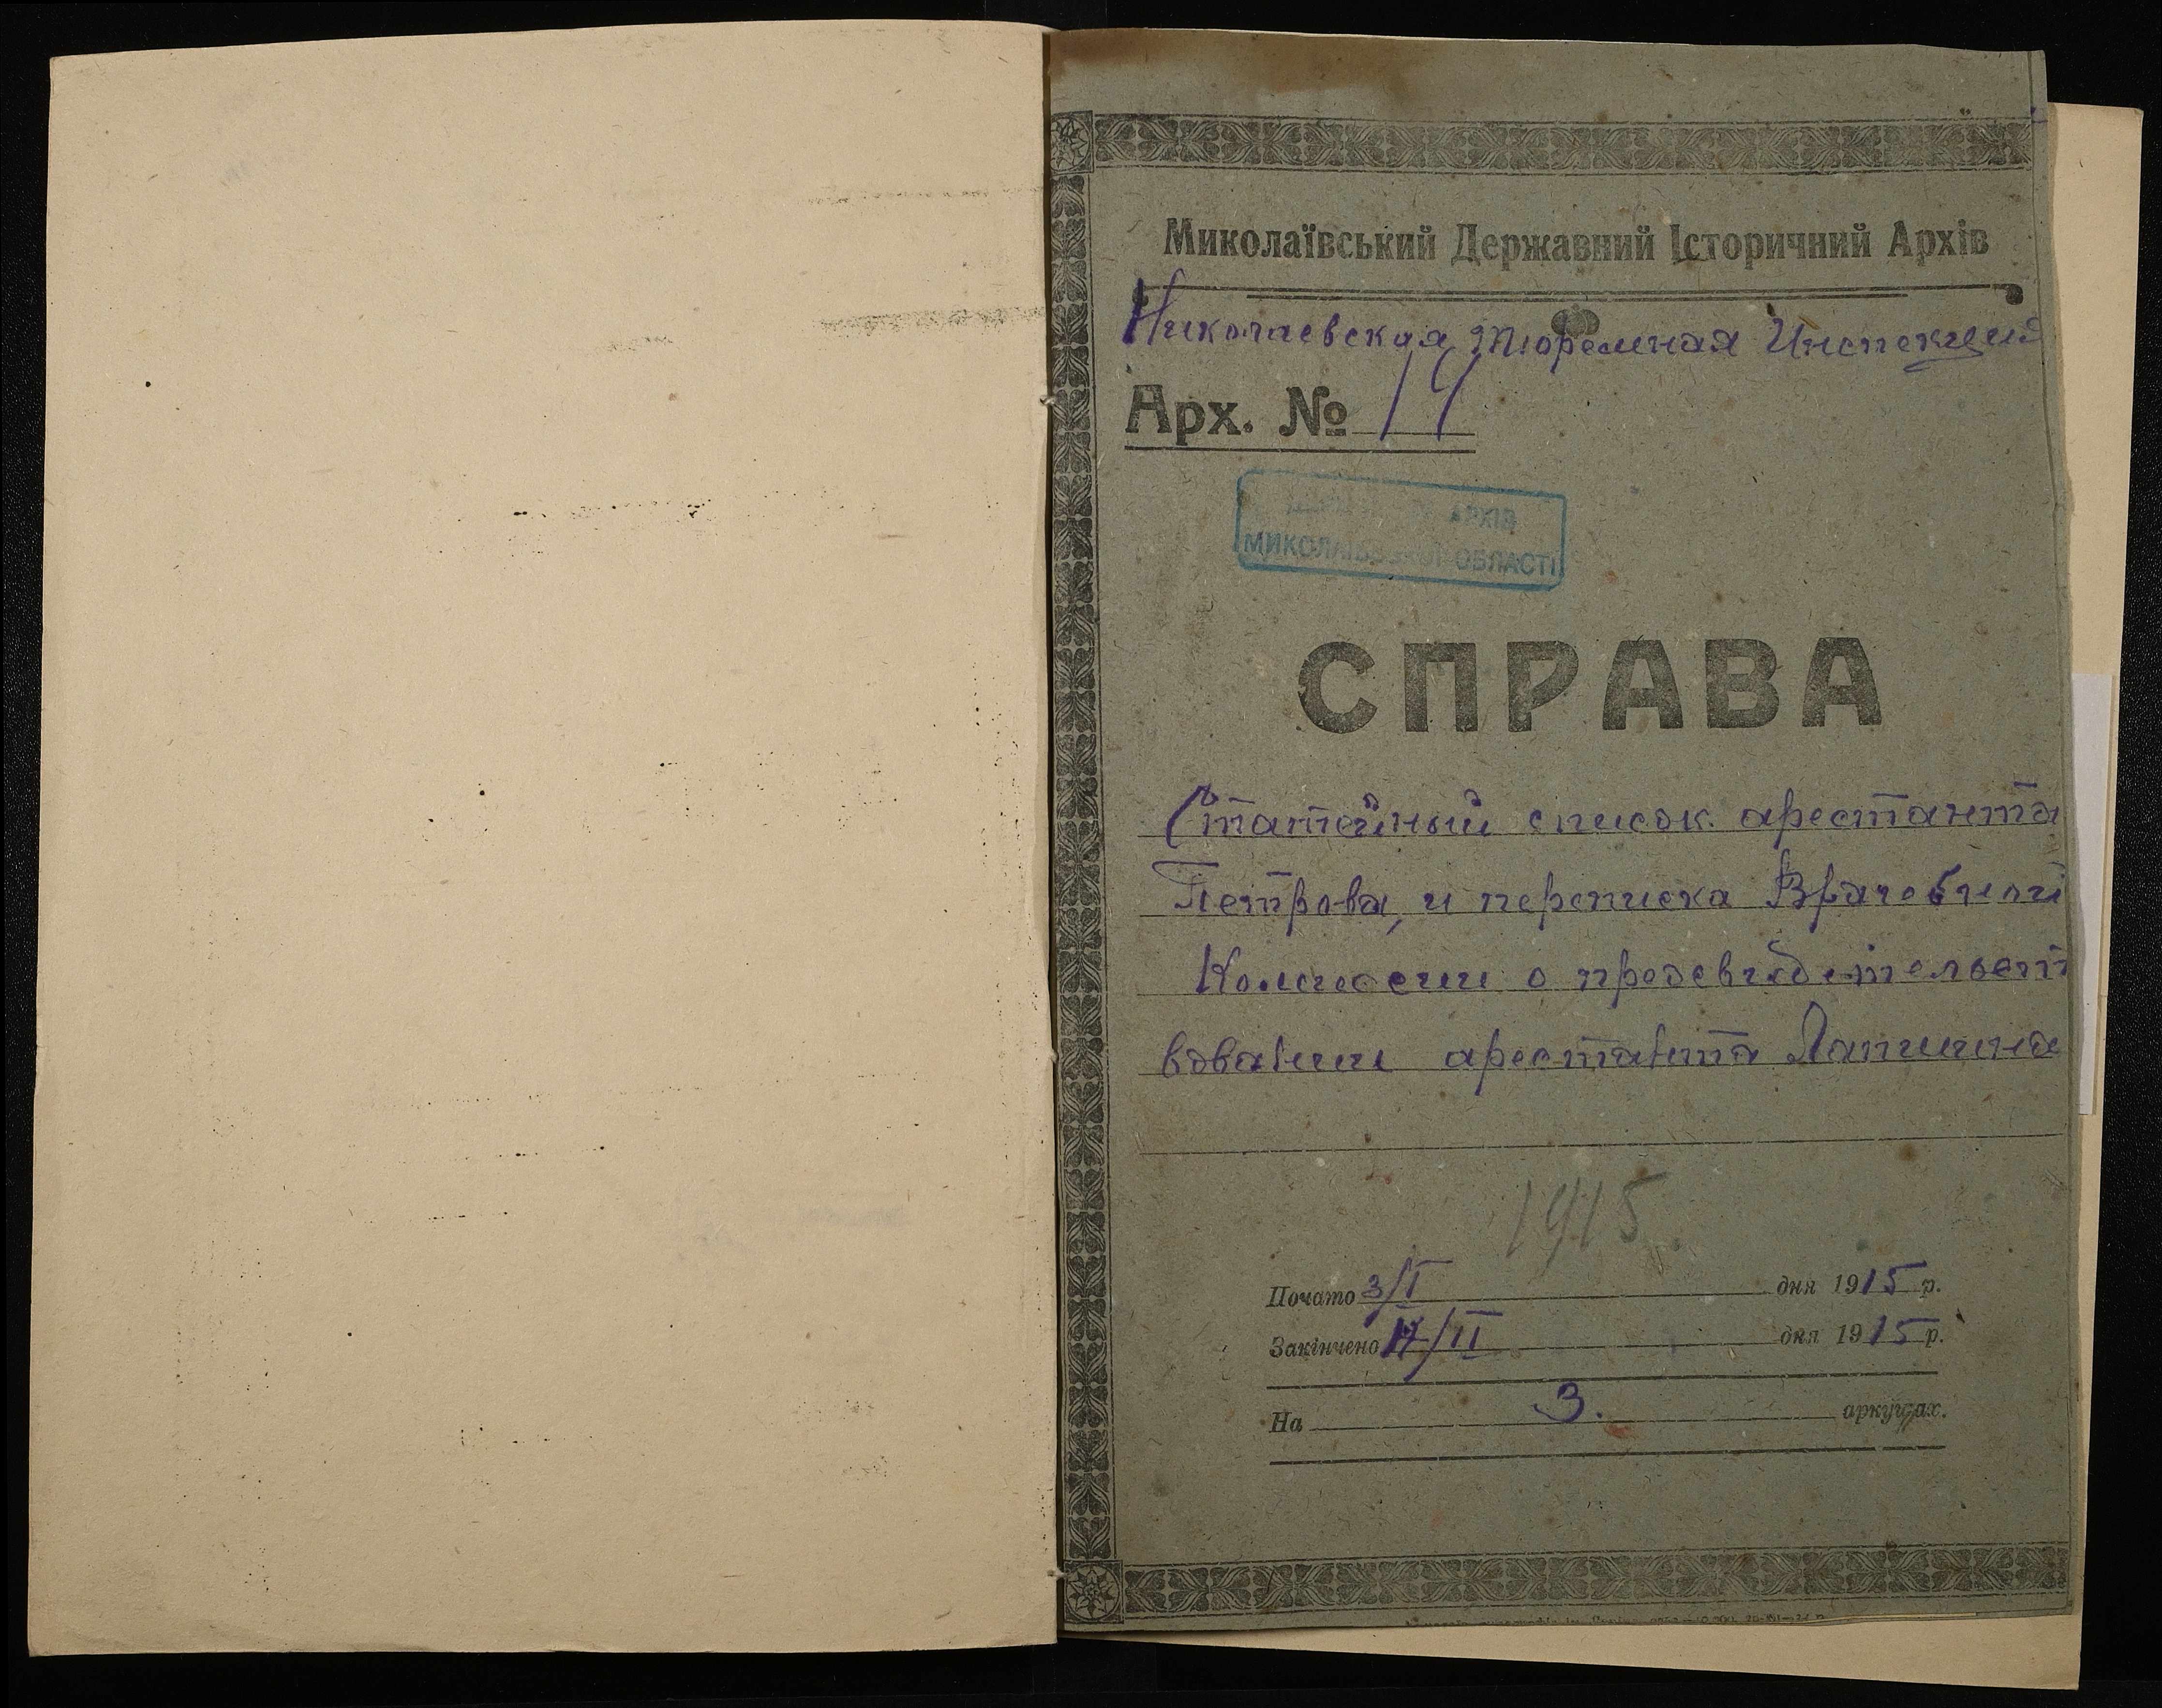 Миколаївський Державний Історичний Архів
Николаевская Тюремная Инспекция
Арх. № 14
АРХІВ
МИКОЛАЇВСЬКОЇ ОБЛАСТІ
СПРАВА
Статейный список арестанта
Петрова, и переписка Врачебной
Комиссии о
арестанта Лапшина
1915
Почато 3/I дня 1915 р.
Закінчено 17/II дня 1915 р.
На 3. аркушах.